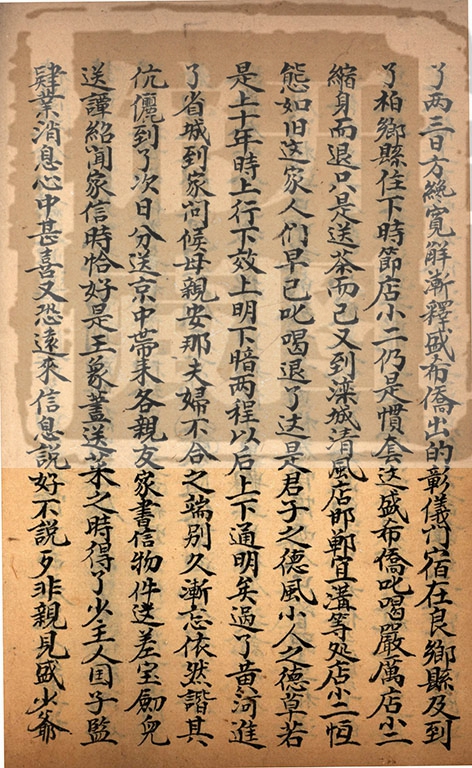 了两三日方纔寛觧漸釋盛布僑出的彰儀门宿在良鄉縣及到
了柏鄉縣住下時節店小二仍是慣套这盛布僑叱喝嚴厲店小二
縮身而退只是送茶而已又到滦城清風店邯鄲宜溝等处店小二恒
態如旧这家人们早已叱喝退了这是君子之德風小人之德草若
是上十年時上行下效上明下暗两程以后上下通明矣過了黄河進
了省城到家问候母親安那夫婦不合之端别久漸忘依然諧其
伉儷到了次日分送京中帶来各親友家書信物件迸差宝劍兒
送譚紹闻家信時恰好是王象藎送菜之時得了少主人囯子監
肄業消息心中甚喜又恐遠來信息説好不説歹非親見盛少爺